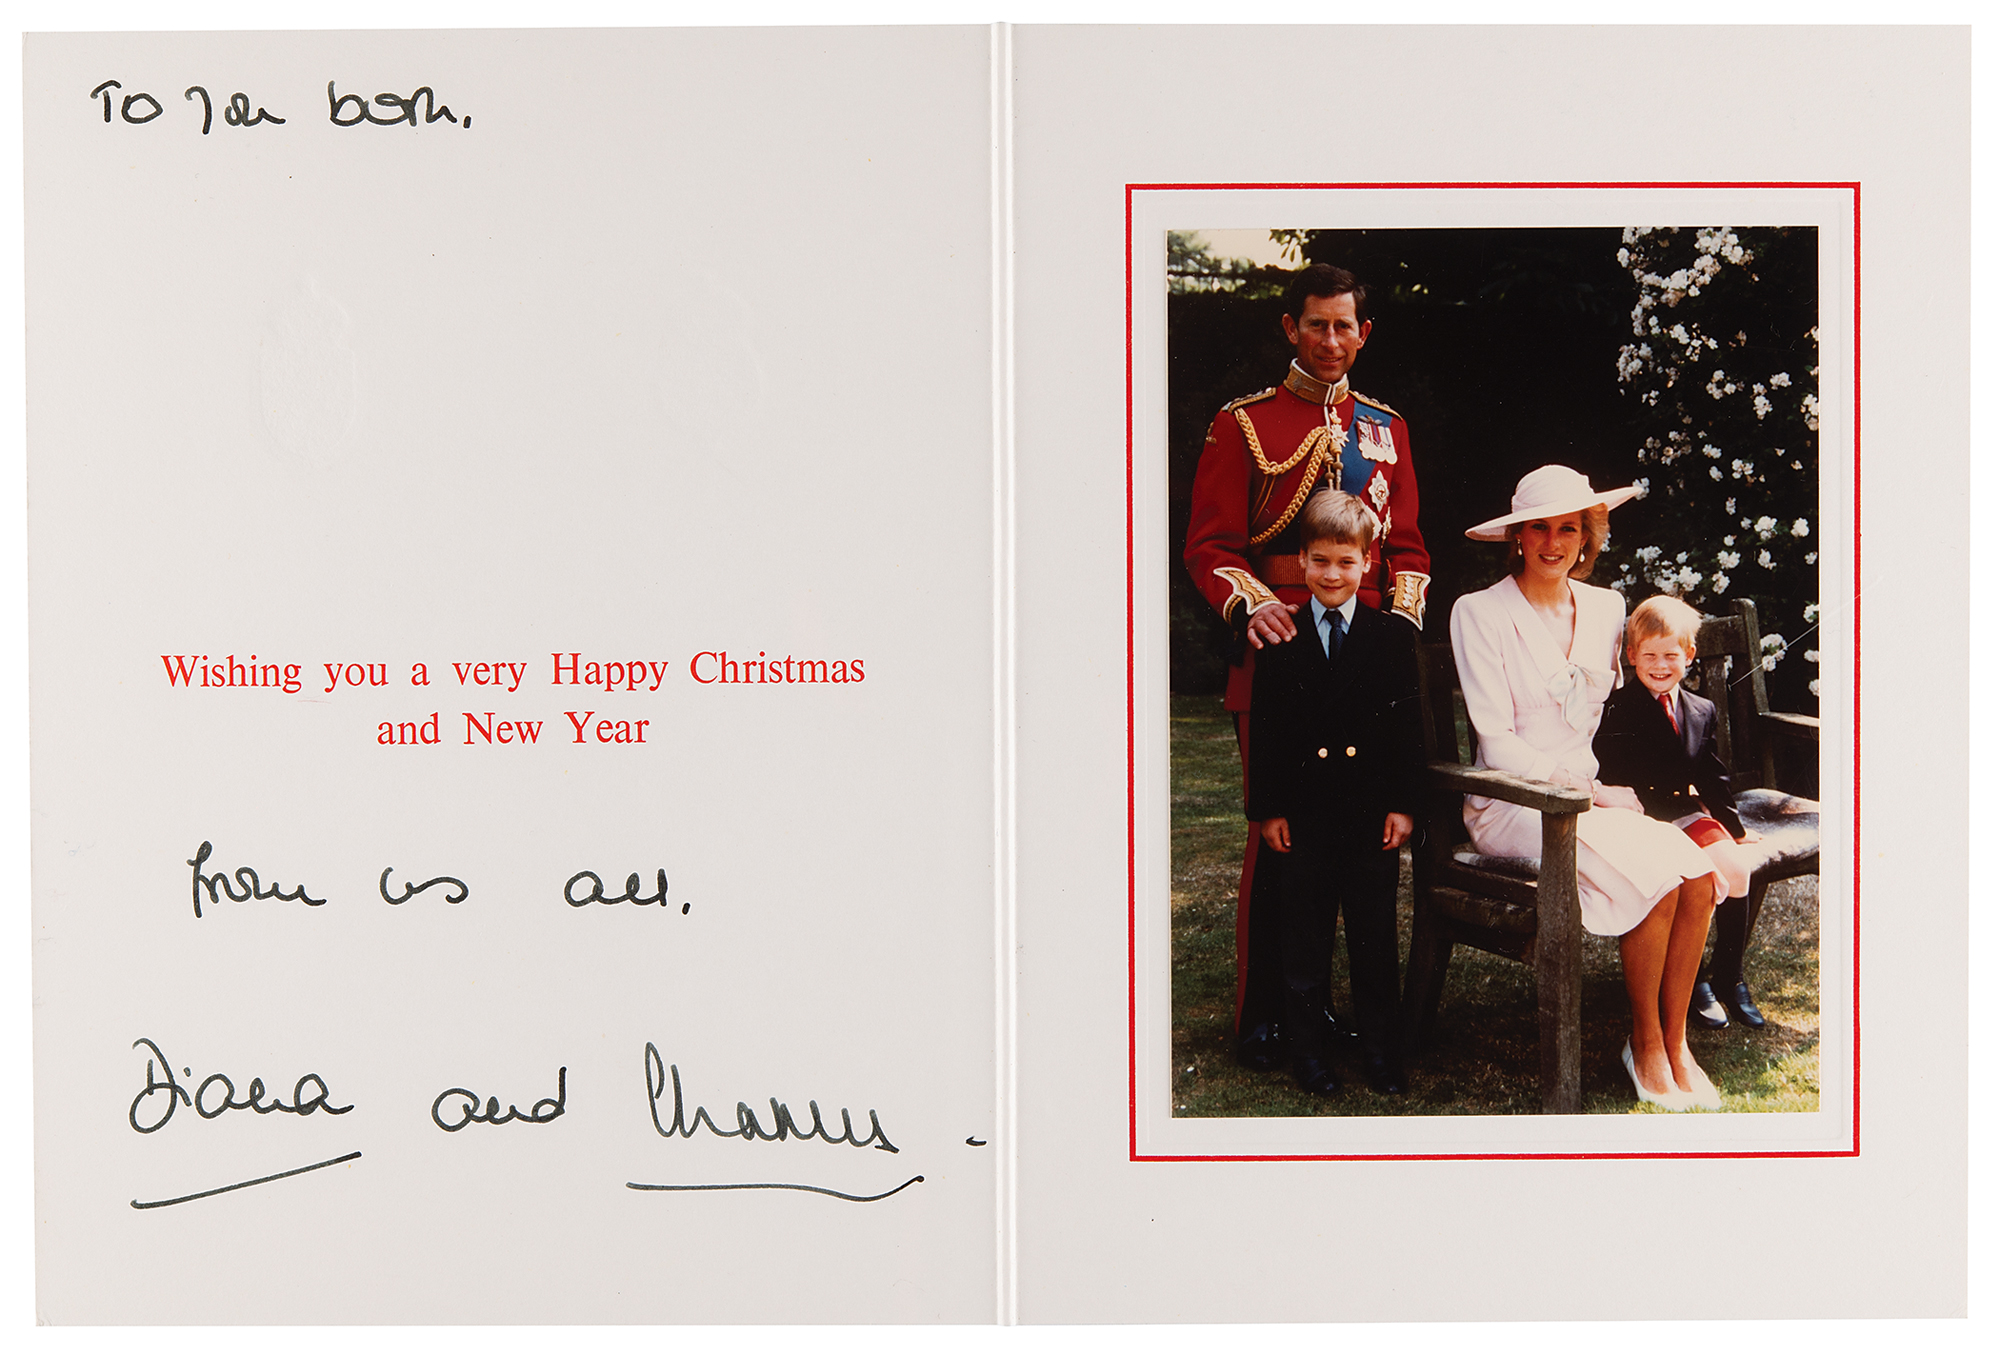 To you both.
Wishing you a very Happy Christmas
and New Year
from us all.
Diana and Charles -